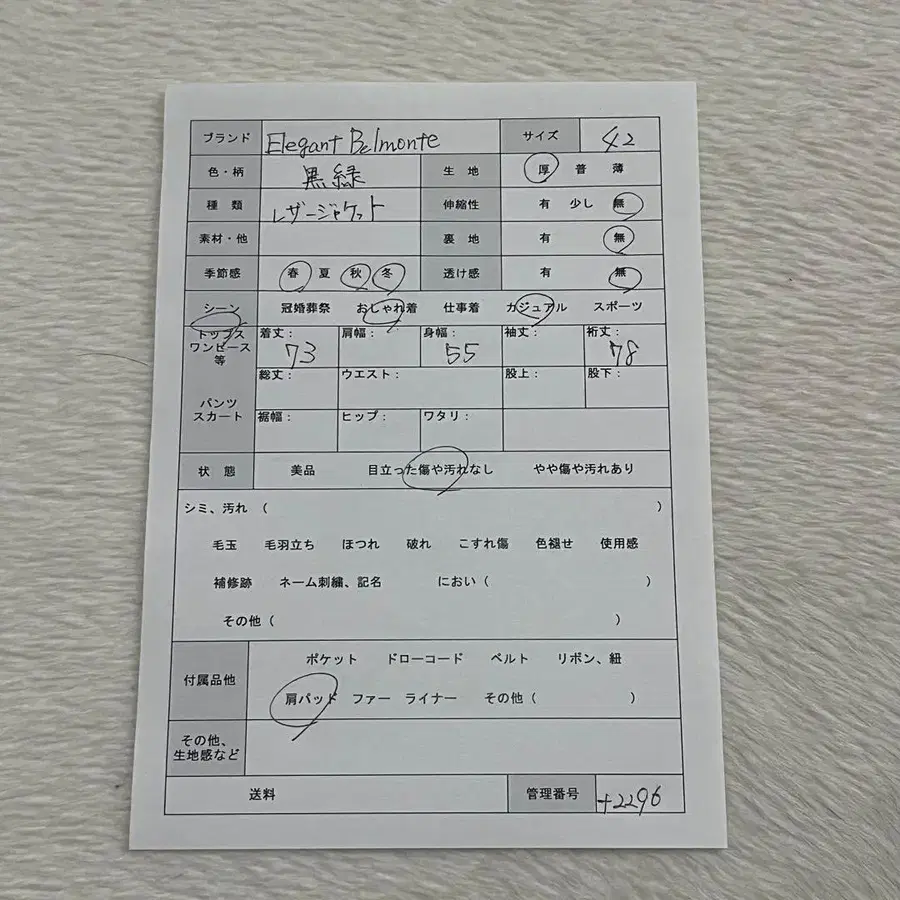 ブランド Elegant Belmonte サイズ 42
色・柄 黒緑 生 地 厚 普 薄
種 類 レザージャケット 伸縮性 有 少し 無
素材・他 裏 地 有 無
季節感 春 夏 秋 冬 透け感 有 無
シーン 冠婚葬祭 おしゃれ着 仕事着 カジュアル スポーツ
トップス ワンピース 等 着丈: 73 肩幅: 身幅: 55 袖丈: 裄丈: 78
パンツ スカート 総丈: ウエスト: 股上: 股下:
裾幅: ヒップ: ワタリ:
状 態 美品 目立った傷や汚れなし やや傷や汚れあり
シミ、汚れ ( )
毛玉 毛羽立ち ほつれ 破れ こすれ傷 色褪せ 使用感
補修跡 ネーム刺繍、記名 におい ( )
その他 ( )
付属品他 ポケット ドローコード ベルト リボン、紐
肩パッド ファー ライナー その他 ( )
その他、
生地感など
送料 管理番号 +2296